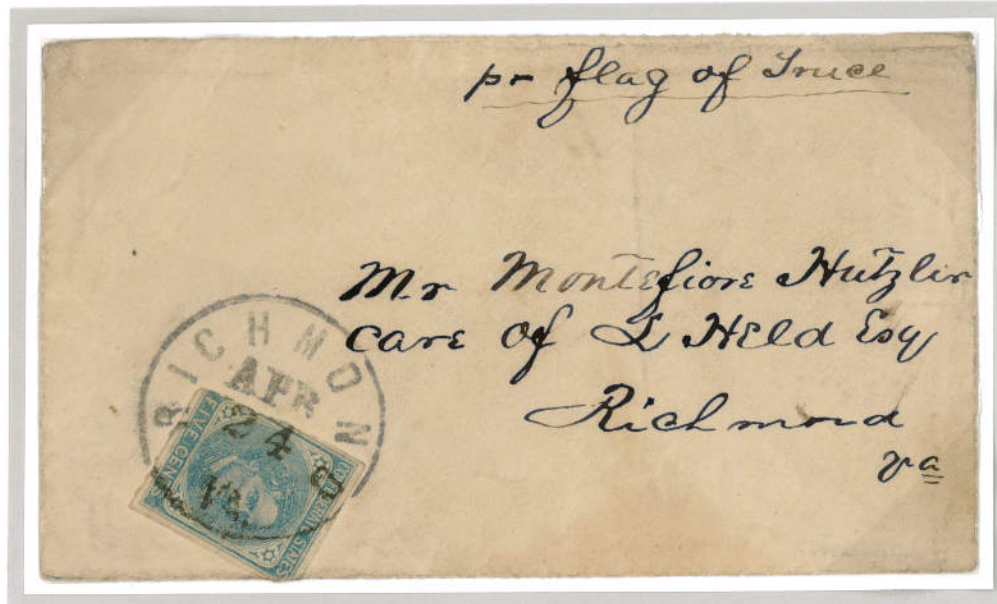 pr flag of Truce
Mr Montefiore Hutzler
care of L Held Esq
Richmond
Va
RICHMOND
APR
24
Va.
FIVE CENTS
STATES